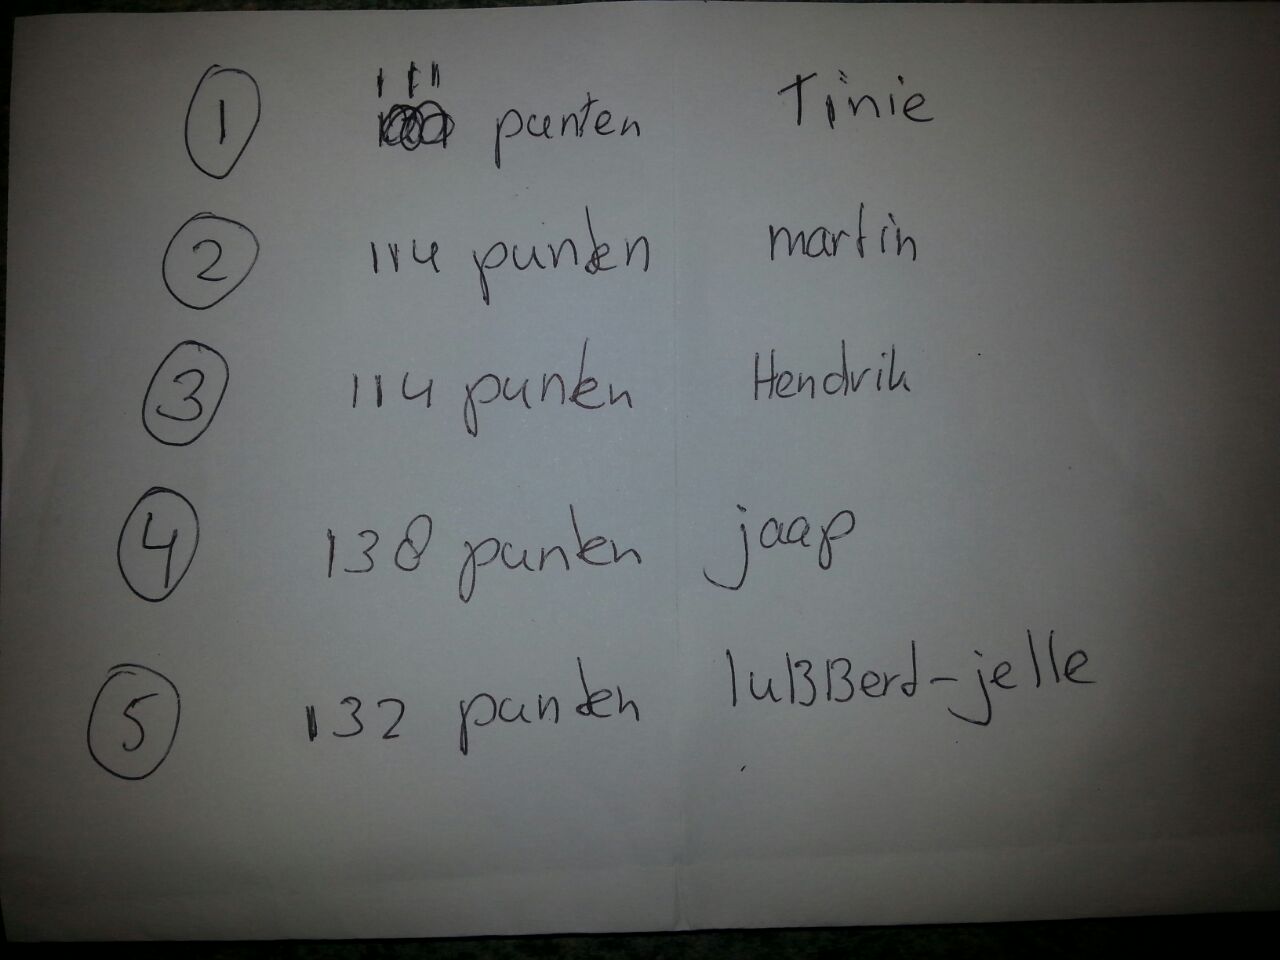 1 111 punten Tinie
2 114 punten martin
3 114 punten Hendrik
4 138 punten jaap
5 132 punten luBBerd-jelle